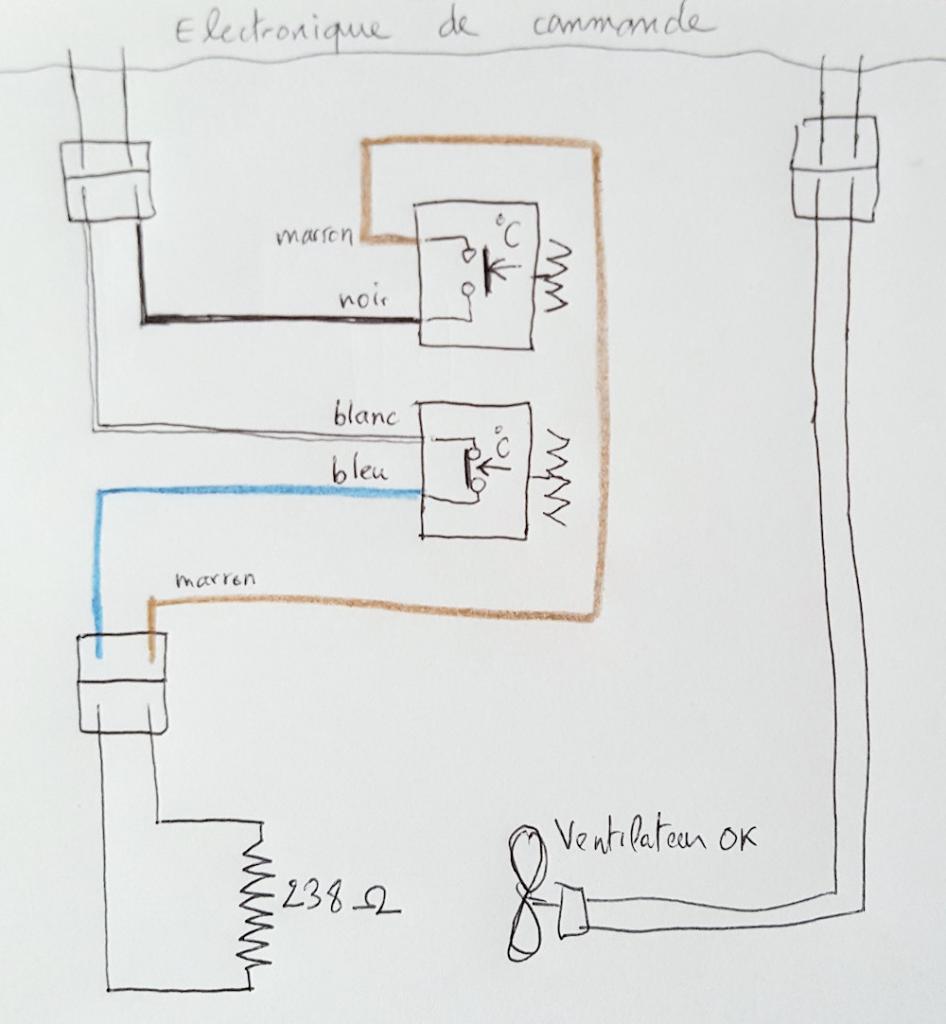 Electronique de commande
°C
marron
noir
blanc
°C
bleu
marron
Ventilateur OK
238 Ω